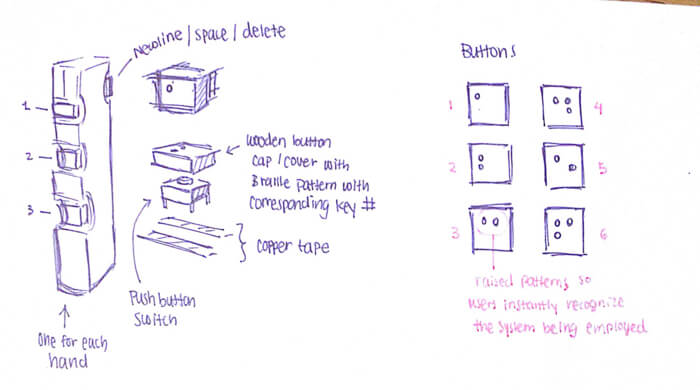 Newline/space/delete
1
2
3
wooden button
cap/cover with
Braille pattern with
corresponding key #
copper tape
Pushbutton
switch
one for each
hand
Buttons
1
4
2
5
3
6
raised patterns so
users instantly recognize
the system being employed